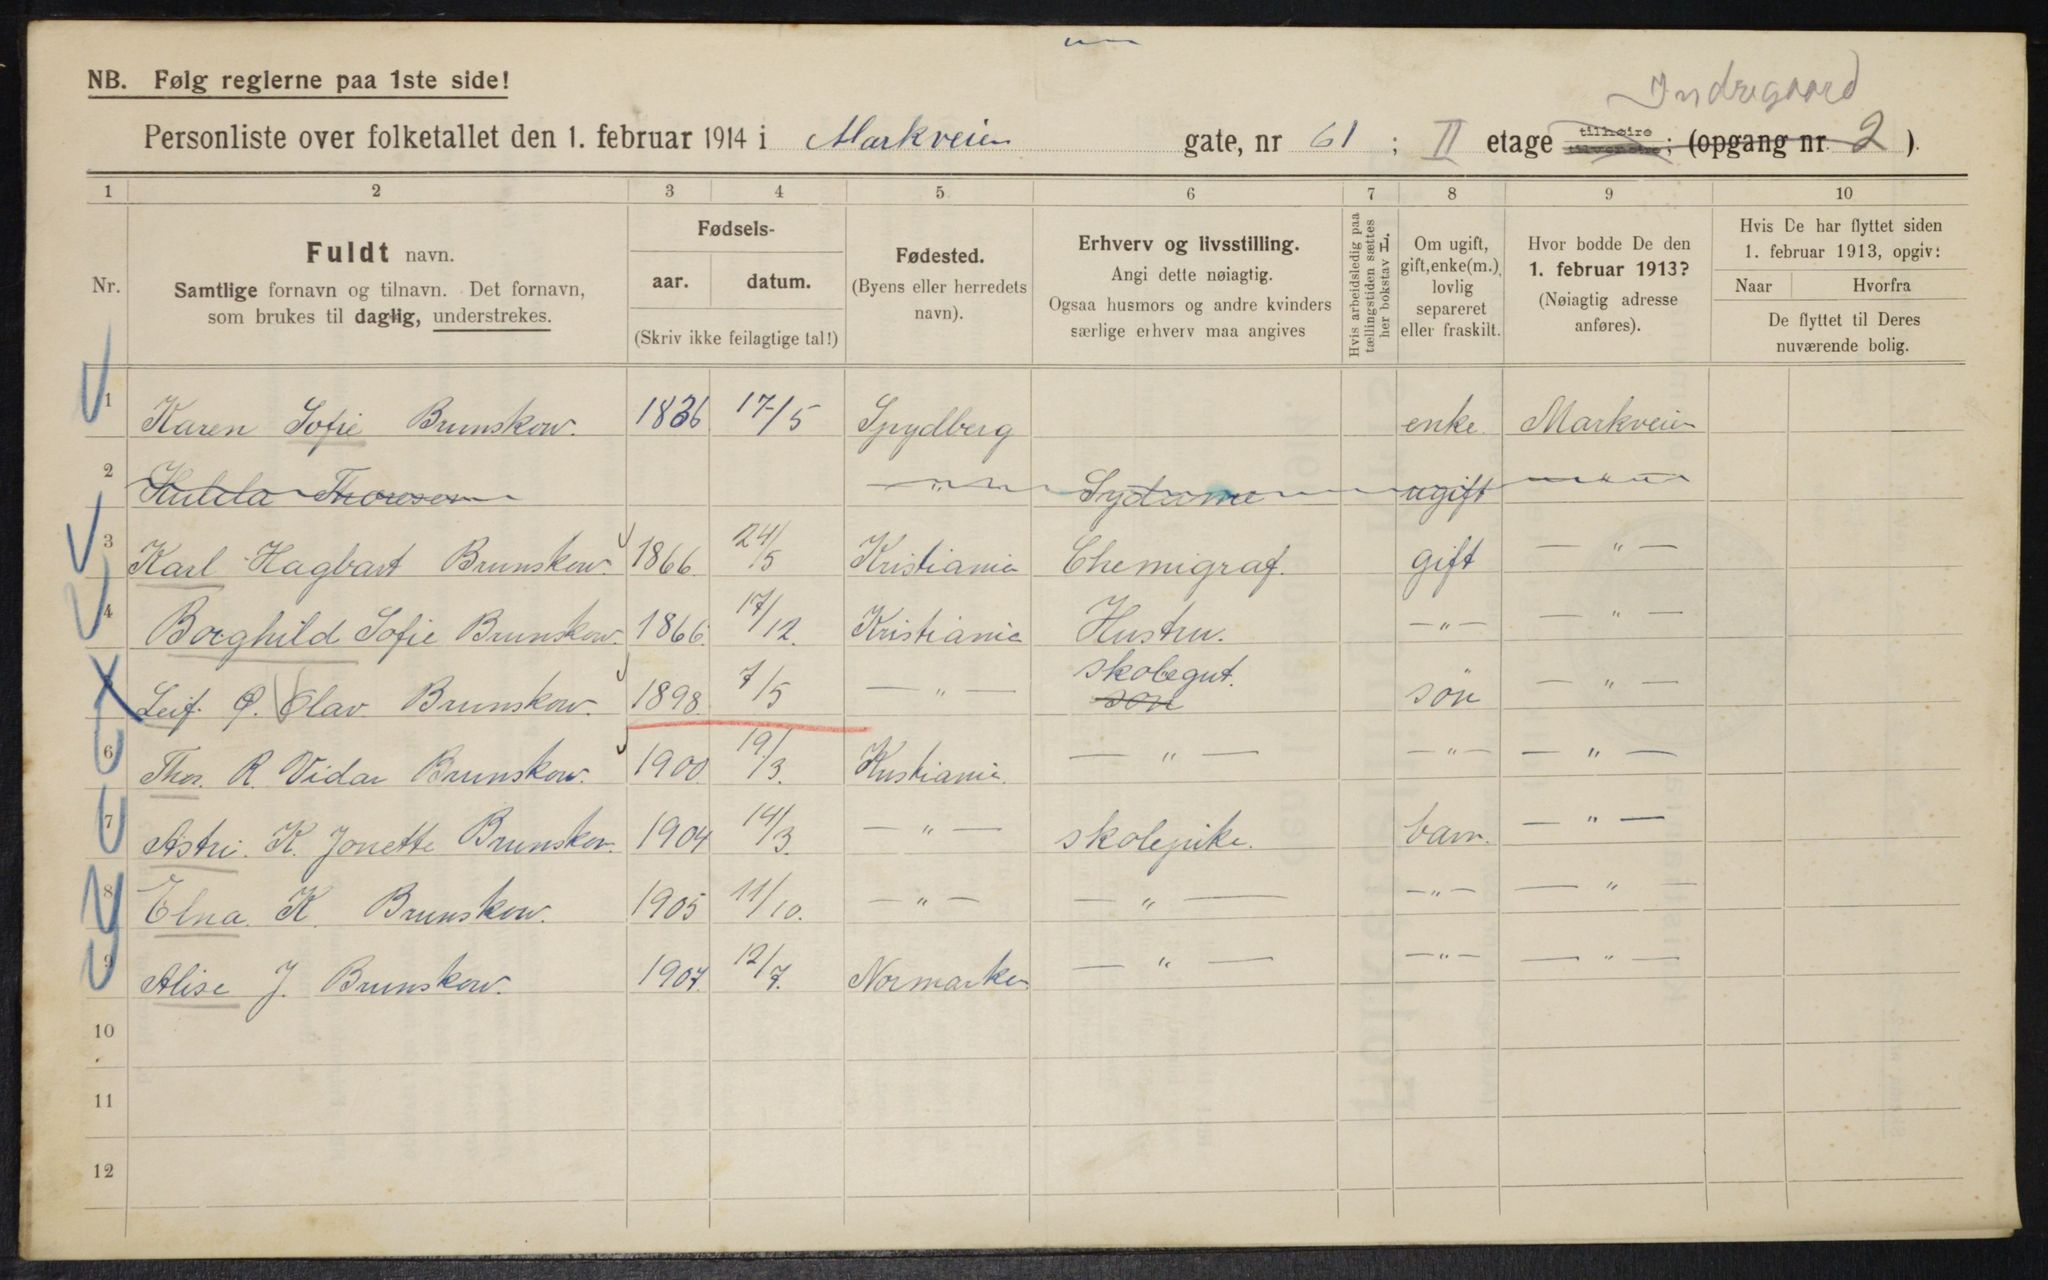 NB. Følg reglerne paa 1ste side!
Indregaard
Personliste over folketallet den 1. februar 1914 i Markveien gate, nr 61 ; II etage tilhøire tilvenstre; (opgang nr. 2 ).
1 2 3 4 5 6 7 8 9 10
Nr.
Fuldt navn.
Samtlige fornavn og tilnavn. Det fornavn,
som brukes til daglig, understrekes.
Fødsels-
aar. datum.
(Skriv ikke feilagtige tal!)
Fødested.
(Byens eller herredets
navn).
Erhverv og livsstilling.
Angi dette nøiagtig.
Ogsaa husmors og andre kvinders
særlige erhverv maa angives
Hvis arbeidsledig paa
tællingstiden sættes
her bokstav L.
Om ugift,
gift, enke(m.),
lovlig
separeret
eller fraskilt.
Hvor bodde De den
1. februar 1913?
(Nøiagtig adresse
anføres).
Hvis De har flyttet siden
1. februar 1913, opgiv:
Naar Hvorfra
De flyttet til Deres
nuværende bolig.
1 Karen Sofie Brunskow. 1836 17/5 Spydberg enke Markveien
2 Hulda Thoresen — " — Sydame ugift — " —
3 Karl Hagbart Brunskow. 1866. 24/5 Kristiania Chemigraf. gift — " —
4 Borghild Sofie Brunskow. 1866 17/12. Kristiania Hustru. — " — — " —
Leif. Ø. Olav. Brunskow. 1898 7/5 — " — skolegut. søn søn — " —
6 Thor. R. Vidar Brunskow. 1900 19/3. Kristiania. — " — — " — — " —
7 Astri. K. Jonette Brunskow. 1904 14/3. — " — skolepike. barn. — " —
8 Elna. K. Brunskow. 1905 11/10. — " — — " — — " — — " —
9 Alise J. Brunskow. 1907. 12/7. Normarken — " — — " — — " —
10
11
12